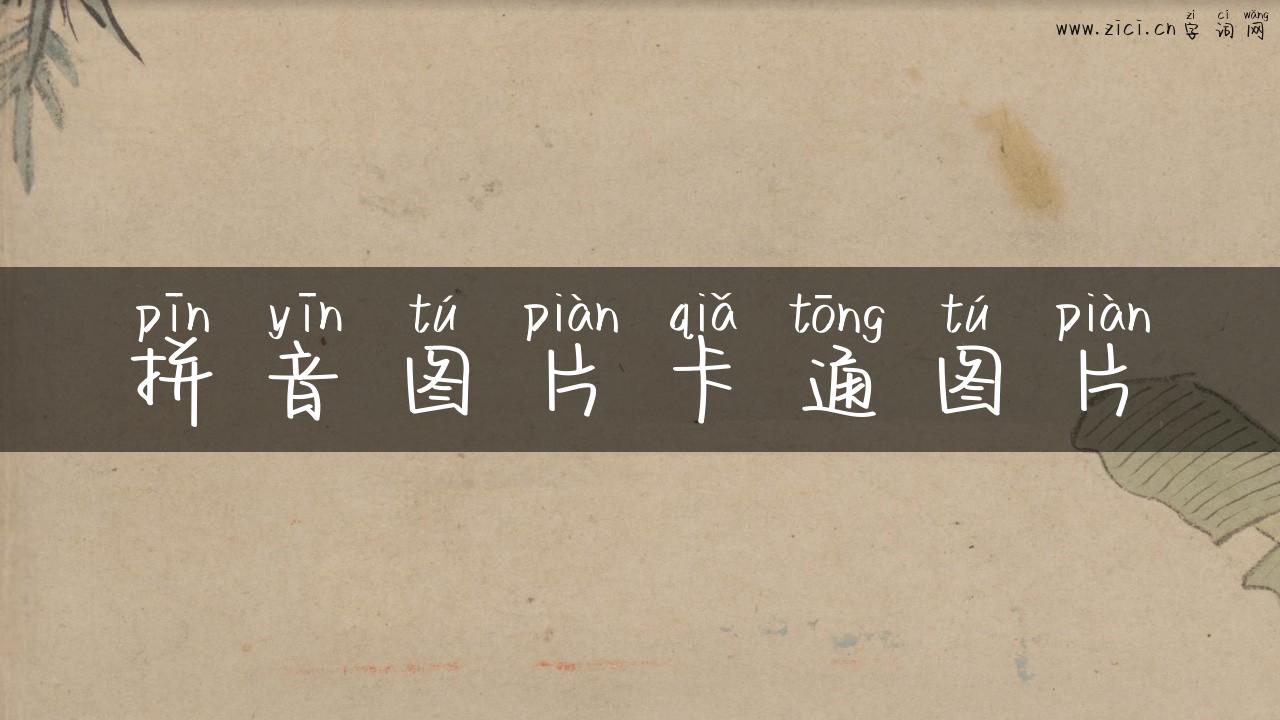 zì cí wǎng
www.zici.cn 字 词 网
pīn yīn tú piàn qiǎ tōng tú piàn
拼 音 图 片 卡 通 图 片